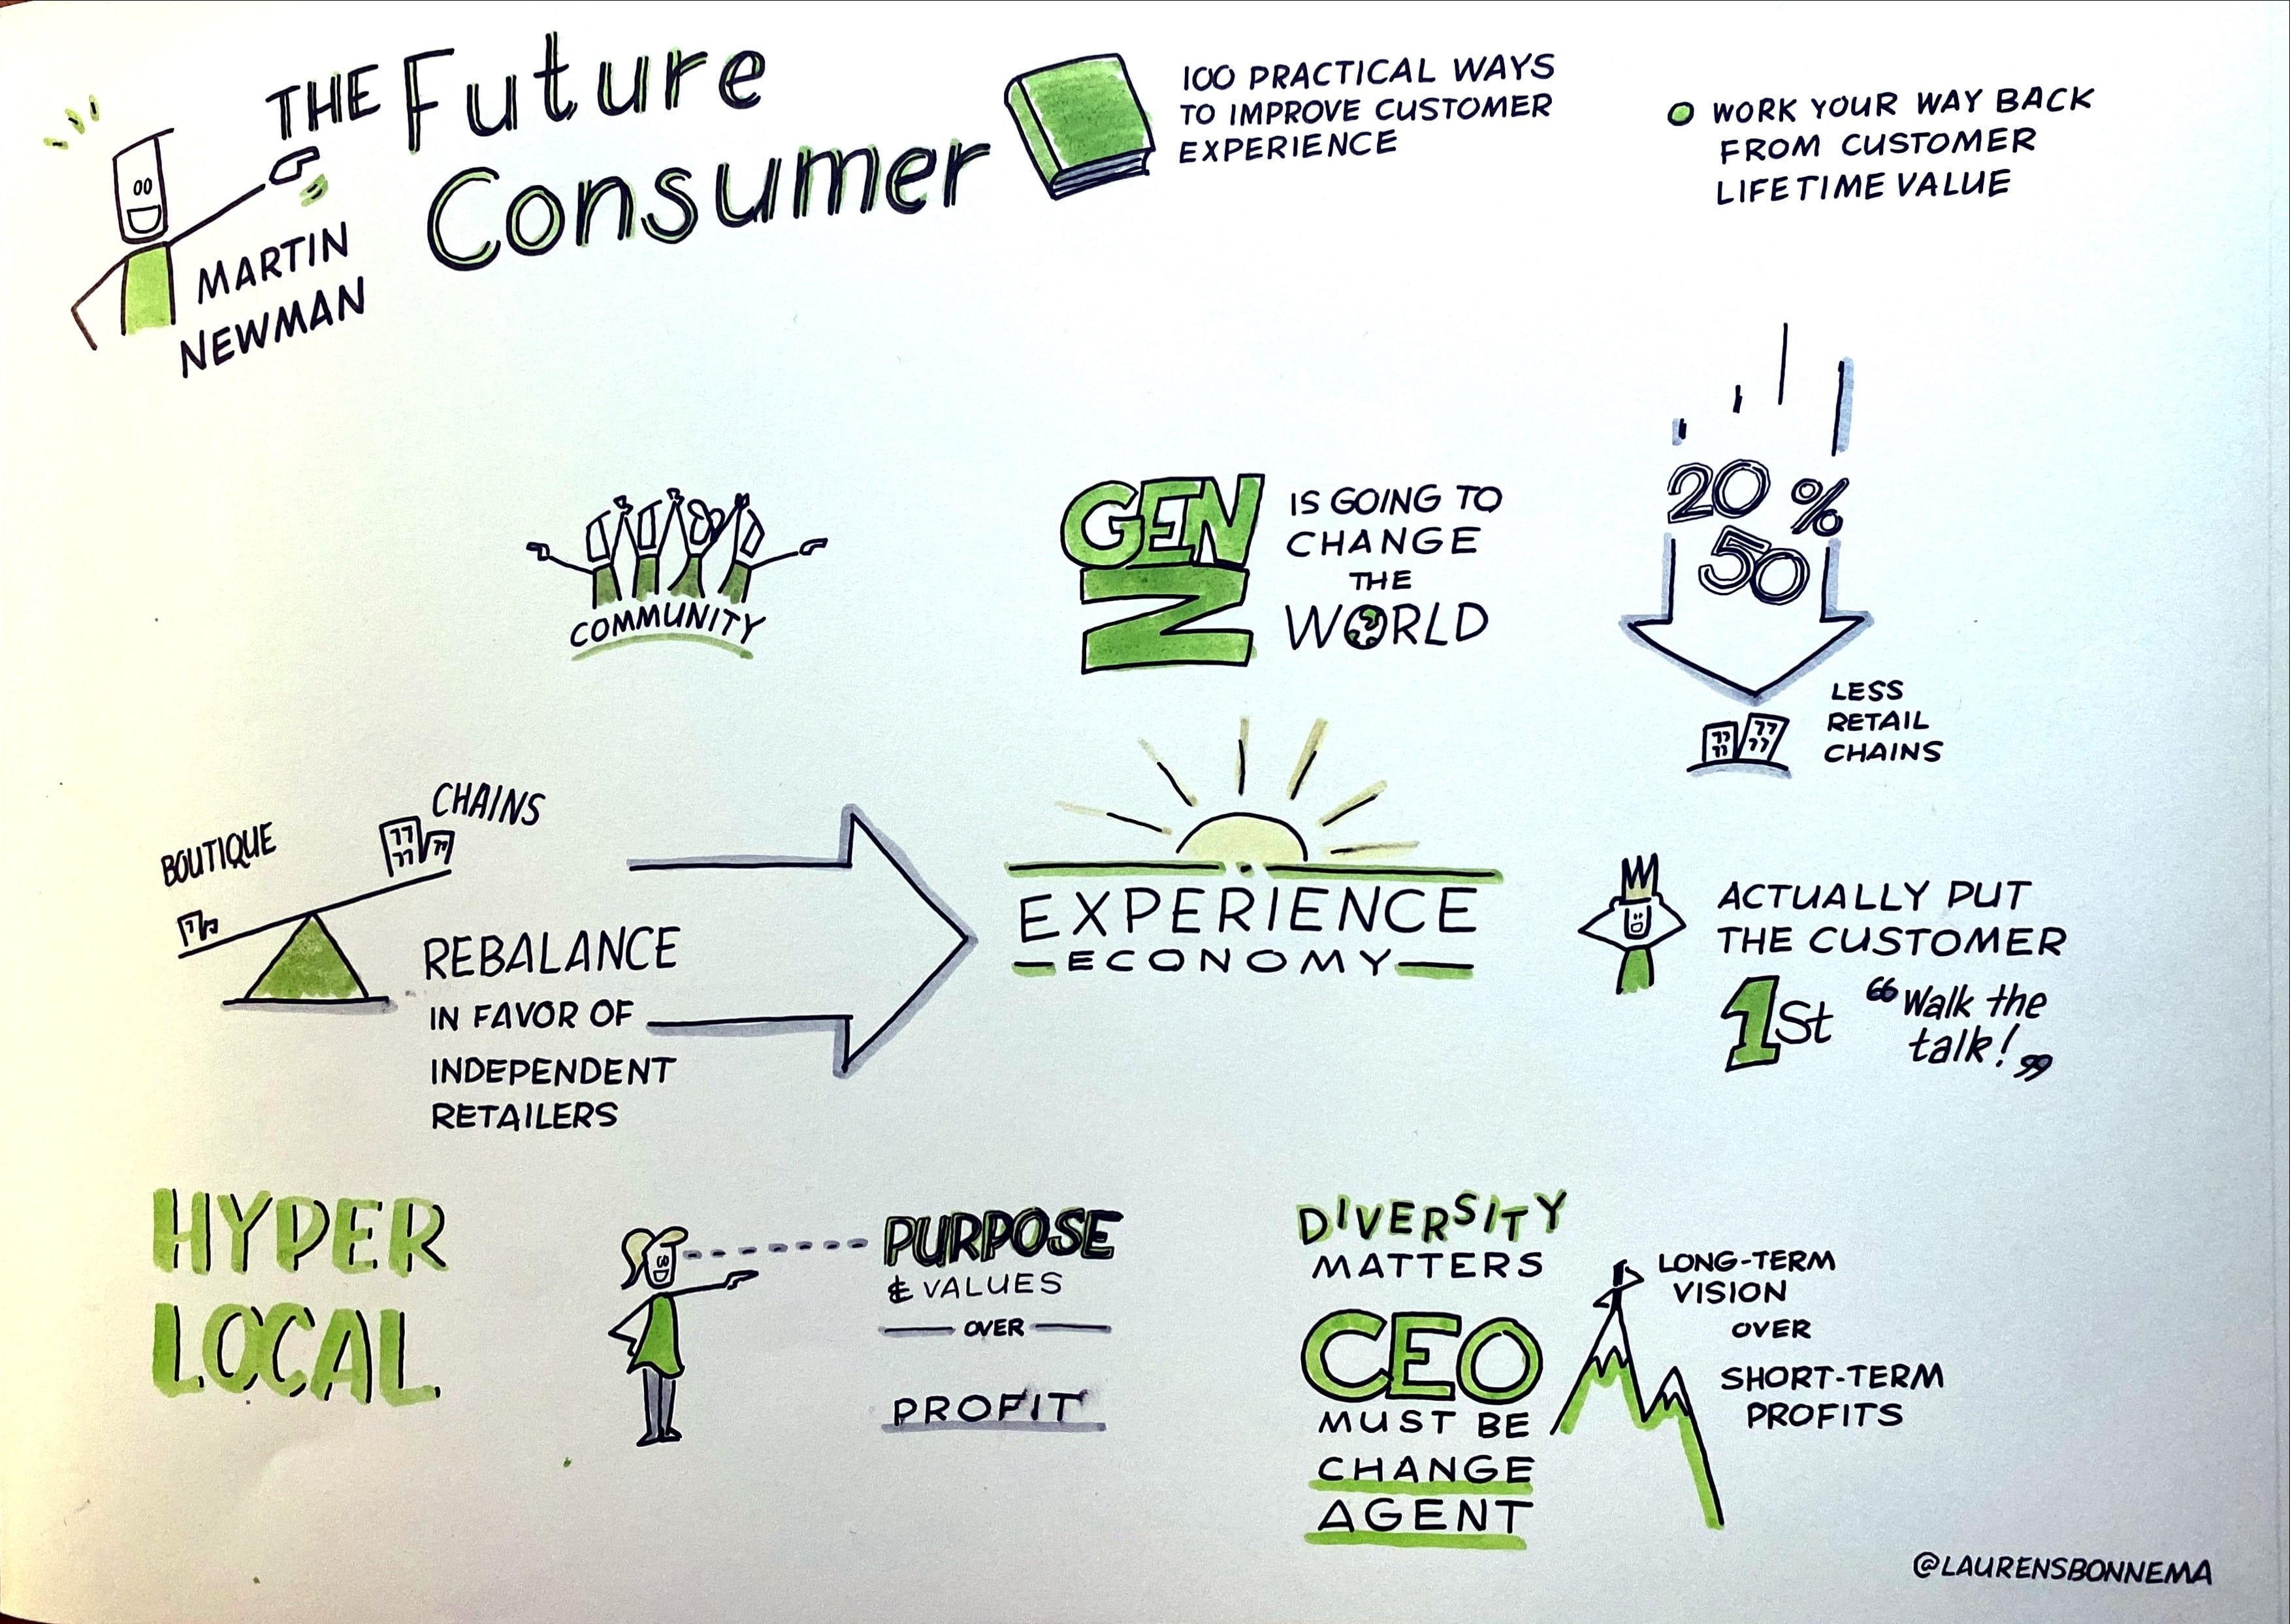 THE Future
Consumer
MARTIN
NEWMAN
100 PRACTICAL WAYS
TO IMPROVE CUSTOMER
EXPERIENCE
WORK YOUR WAY BACK
FROM CUSTOMER
LIFETIME VALUE
COMMUNITY
GEN
Z
IS GOING TO
CHANGE
THE
WORLD
20 %
50
LESS
RETAIL
CHAINS
BOUTIQUE
CHAINS
REBALANCE
IN FAVOR OF
INDEPENDENT
RETAILERS
EXPERIENCE
ECONOMY
ACTUALLY PUT
THE CUSTOMER
1St
“Walk the
talk!”
HYPER
LOCAL
PURPOSE
& VALUES
OVER
PROFIT
DIVERSITY
MATTERS
CEO
MUST BE
CHANGE
AGENT
LONG-TERM
VISION
OVER
SHORT-TERM
PROFITS
@LAURENSBONNEMA